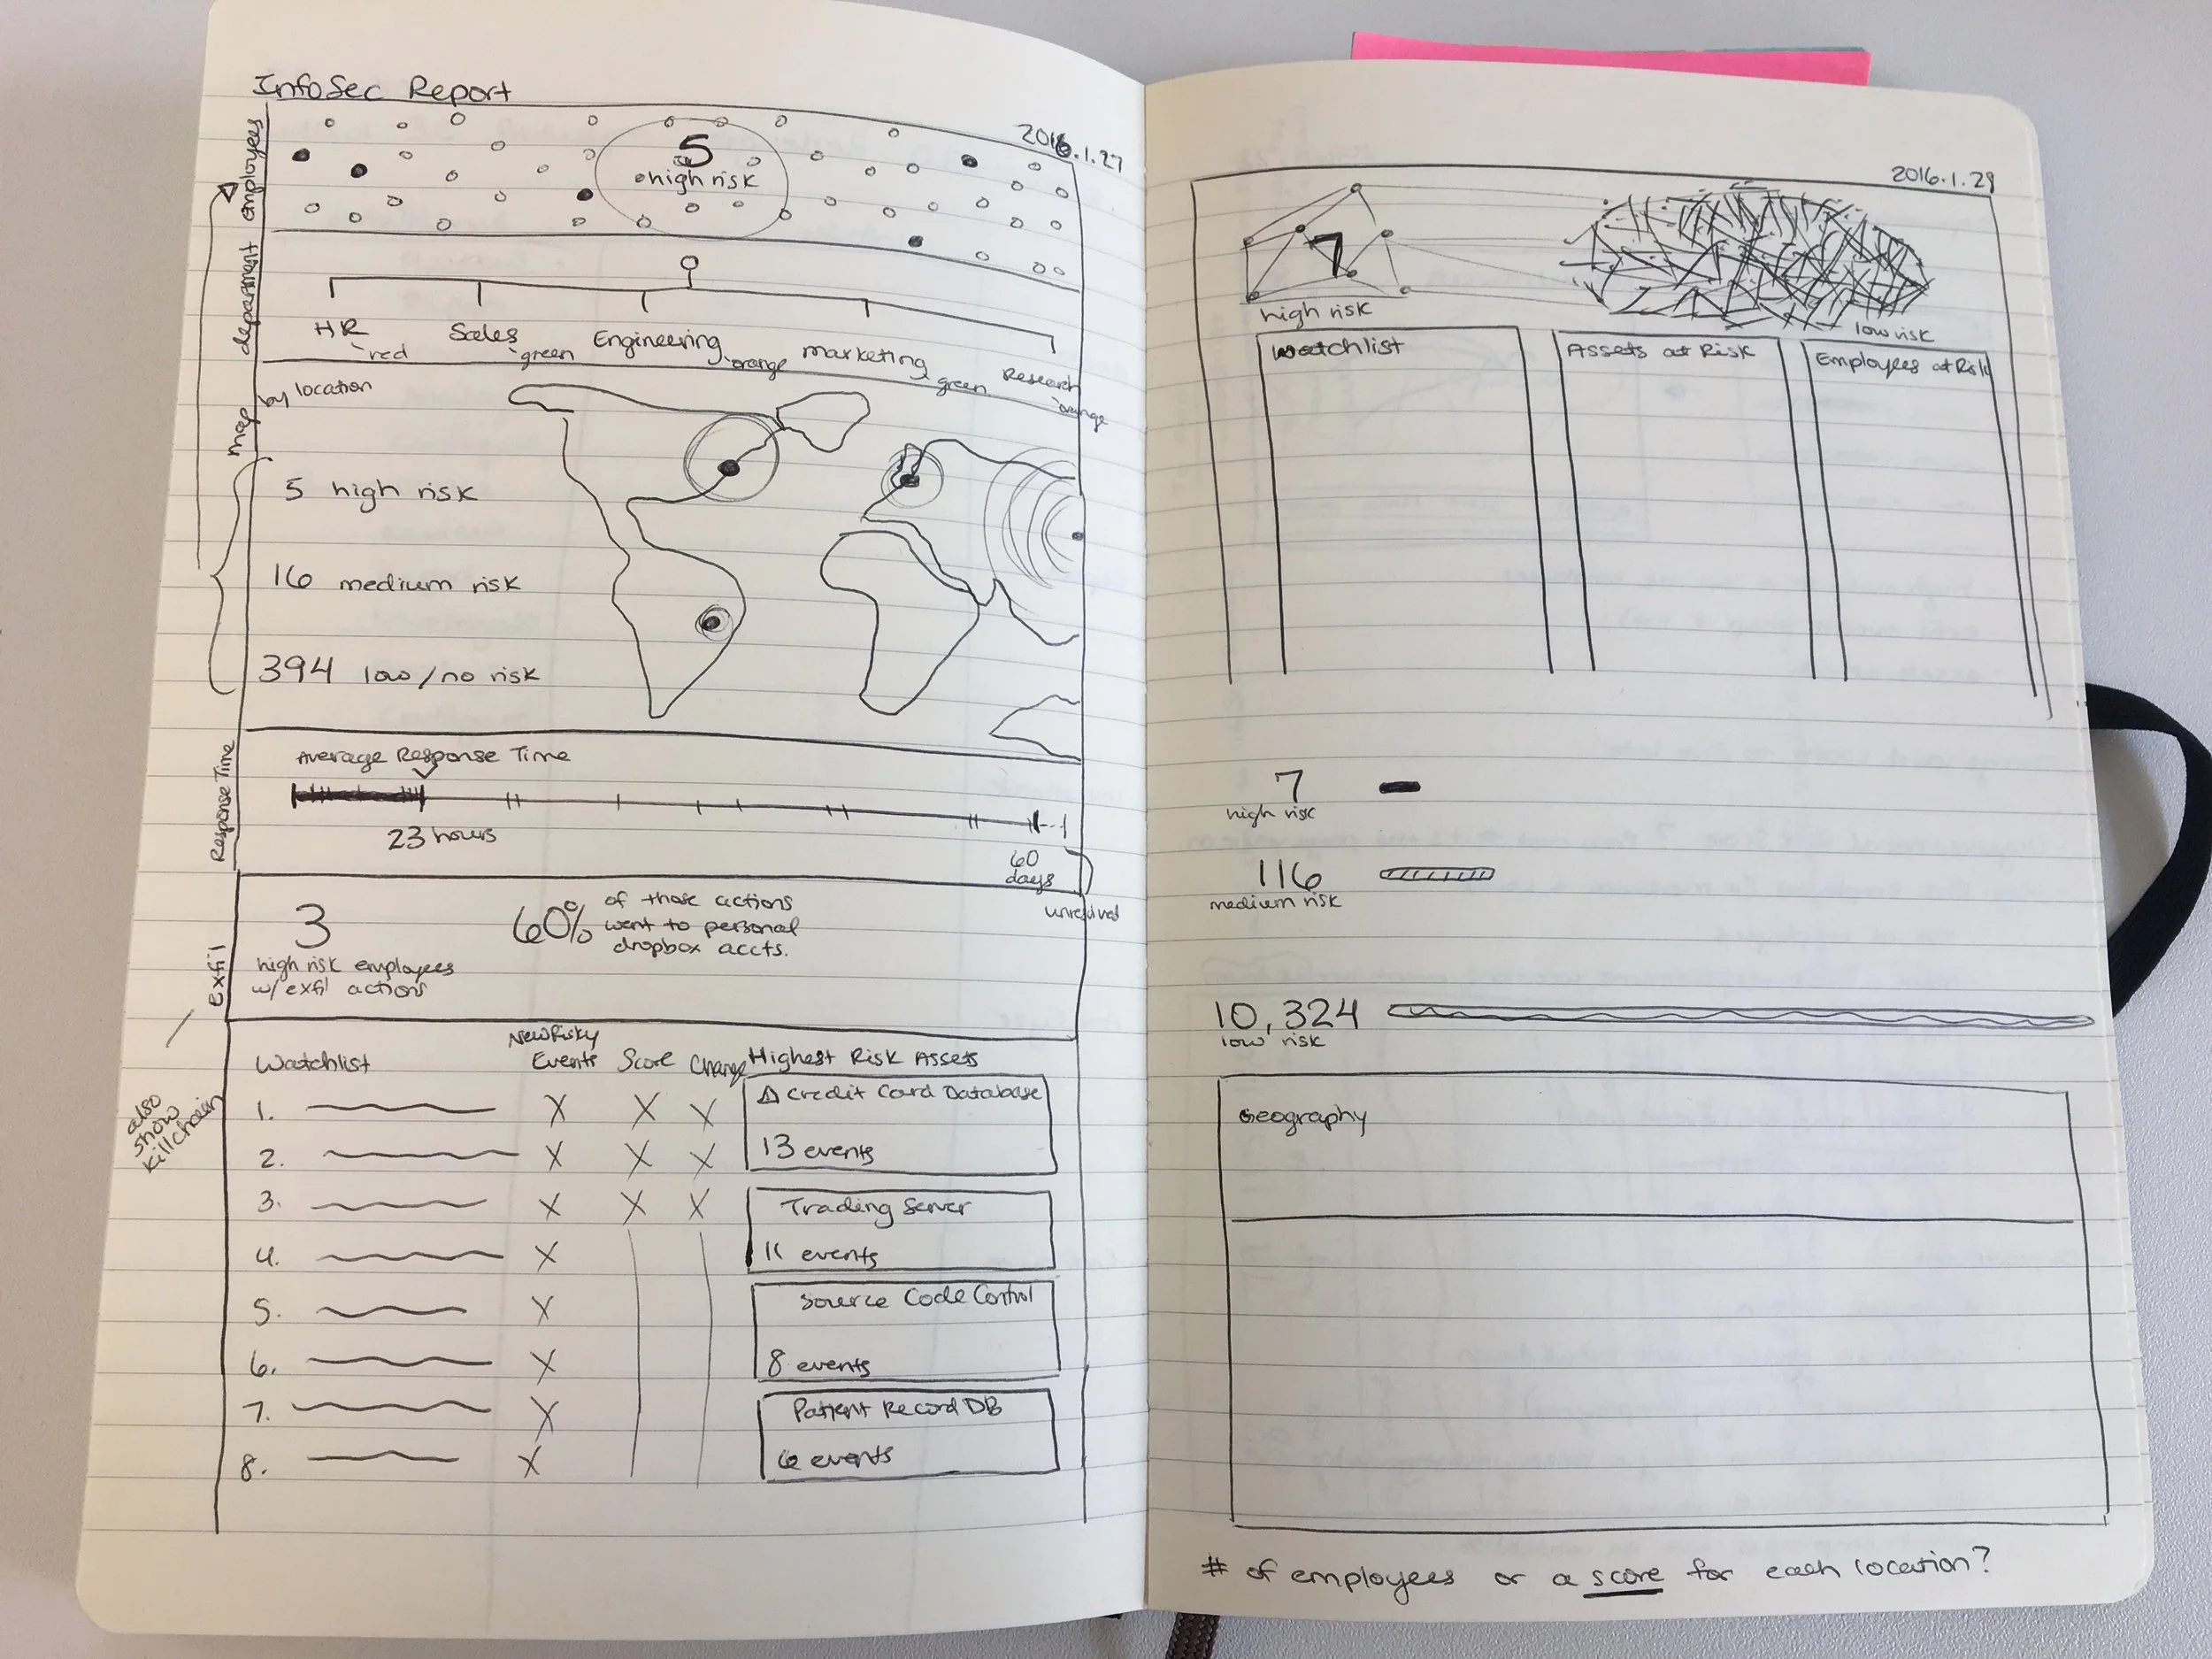 InfoSec Report
2016.1.27
employees
5
high risk
department
HR
red
Sales
green
Engineering
orange
marketing
green
Research
orange
map
by location
5 high risk
16 medium risk
394 low/no risk
Response Time
Average Response Time
23 hours
60
days
unresolved
exfil
3
high risk employees
w/ exfil actions
60%
of those actions
went to personal
dropbox accts.
also
show
killchain
Watchlist
New Risky
Events
Score
Change
1. X X X
2. X X X
3. X X X
4. X
5. X
6. X
7. X
8. X
Highest Risk Assets
Credit Card Database
13 events
Trading Server
11 events
Source Code Control
8 events
Patient Record DB
6 events
2016.1.29
7
high risk
low risk
Watchlist
Assets at Risk
Employees at Risk
7
high risk
116
medium risk
10,324
low risk
Geography
# of employees or a score for each location?